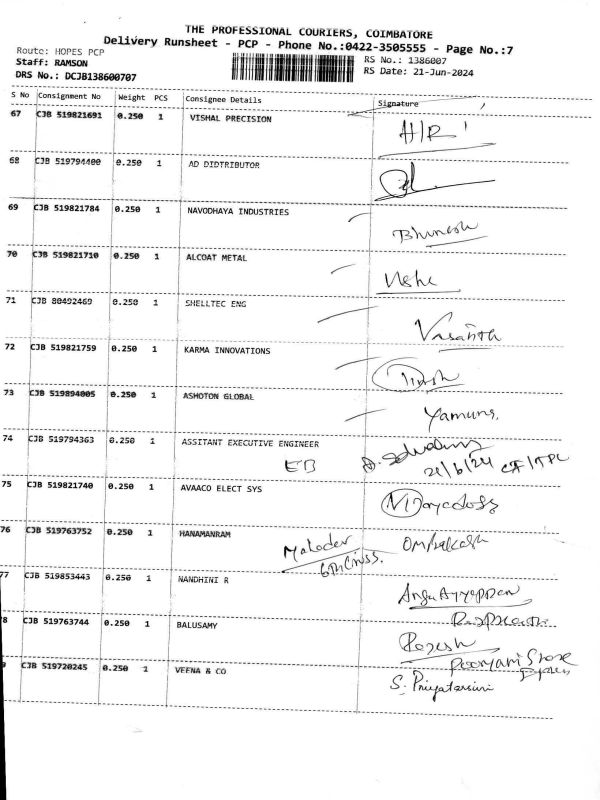 THE PROFESSIONAL COURIERS, COIMBATORE
Delivery Runsheet - PCP - Phone No.:0422-3505555 - Page No.:7
Route: HOPES PCP
RS No.: 1386007
Staff: RAMSON
RS Date: 21-Jun-2024
DRS No.: DCJB138600707
S No Consignment No Weight PCS Consignee Details Signature
67 CJB 519821691 0.250 1 VISHAL PRECISION H/R
68 CJB 519794400 0.250 1 AD DIDTRIBUTOR
69 CJB 519821784 0.250 1 NAVODHAYA INDUSTRIES
70 CJB 519821710 0.250 1 ALCOAT METAL Usha
71 CJB 80492469 0.250 1 SHELLTEC ENG Vasantha
72 CJB 519821759 0.250 1 KARMA INNOVATIONS
73 CJB 519894005 0.250 1 ASHOTON GLOBAL Yamuna.
74 CJB 519794363 0.250 1 ASSITANT EXECUTIVE ENGINEER
EB 21/6/24
75 CJB 519821740 0.250 1 AVAACO ELECT SYS
76 CJB 519763752 0.250 1 HANAMANRAM Mahadev Omprakash
77 CJB 519853443 0.250 1 NANDHINI R
8 CJB 519763744 0.250 1 BALUSAMY Rajesh
9 CJB 519720245 0.250 1 VEENA & CO S. Priyatarsini